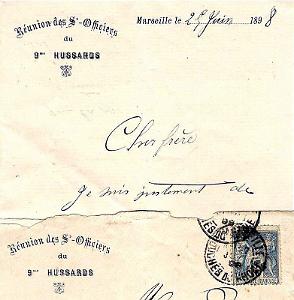 Réunion des Ss-Officiers
du
9me HUSSARDS
Marseille le 25 Juin 1898
Cher frère
Je suis justement de
Réunion des Ss-Officiers
du
9me HUSSARDS